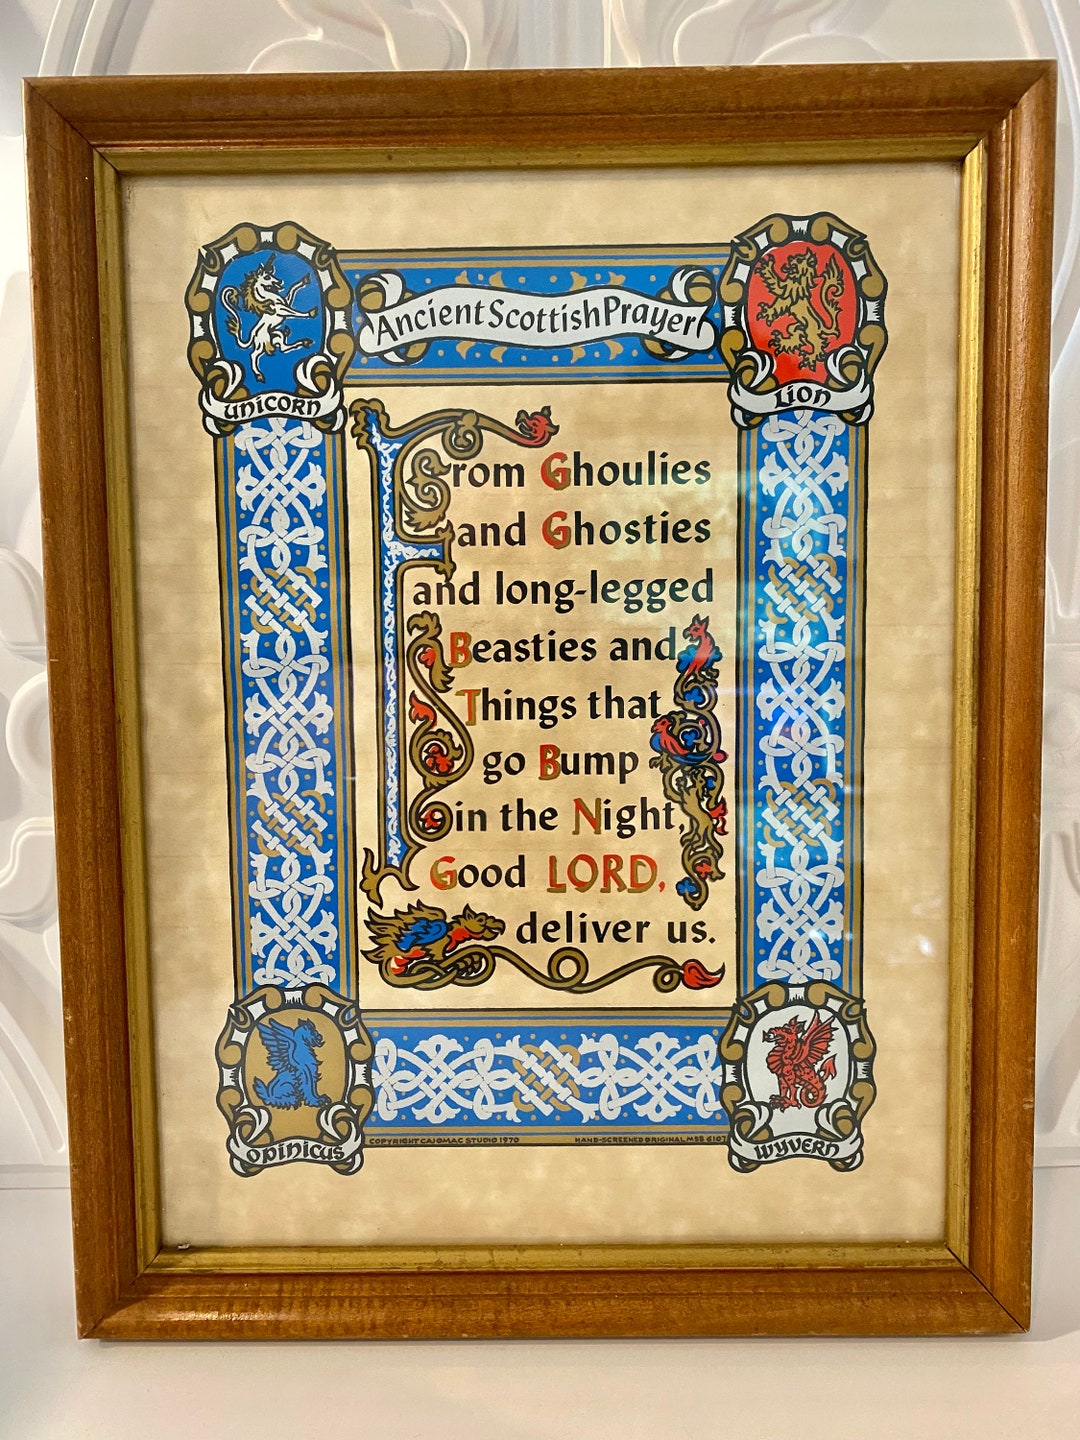 Ancient Scottish Prayer
Unicorn
Lion
From Ghoulies
and Ghosties
and long-legged
Beasties and
Things that
go Bump
in the Night,
Good LORD,
deliver us.
Opinicus
Wyvern
COPYRIGHT CAJOMAC STUDIO 1970
HAND-SCREENED ORIGINAL MSS 6107